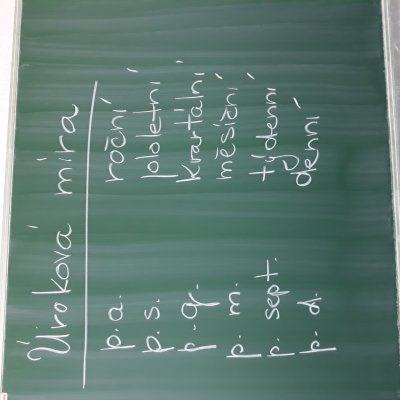 Úroková míra
p.a. roční
p.s. pololetní
p.q. kvartální
p. m. měsíční
p. sept. týdenní
p. d. denní